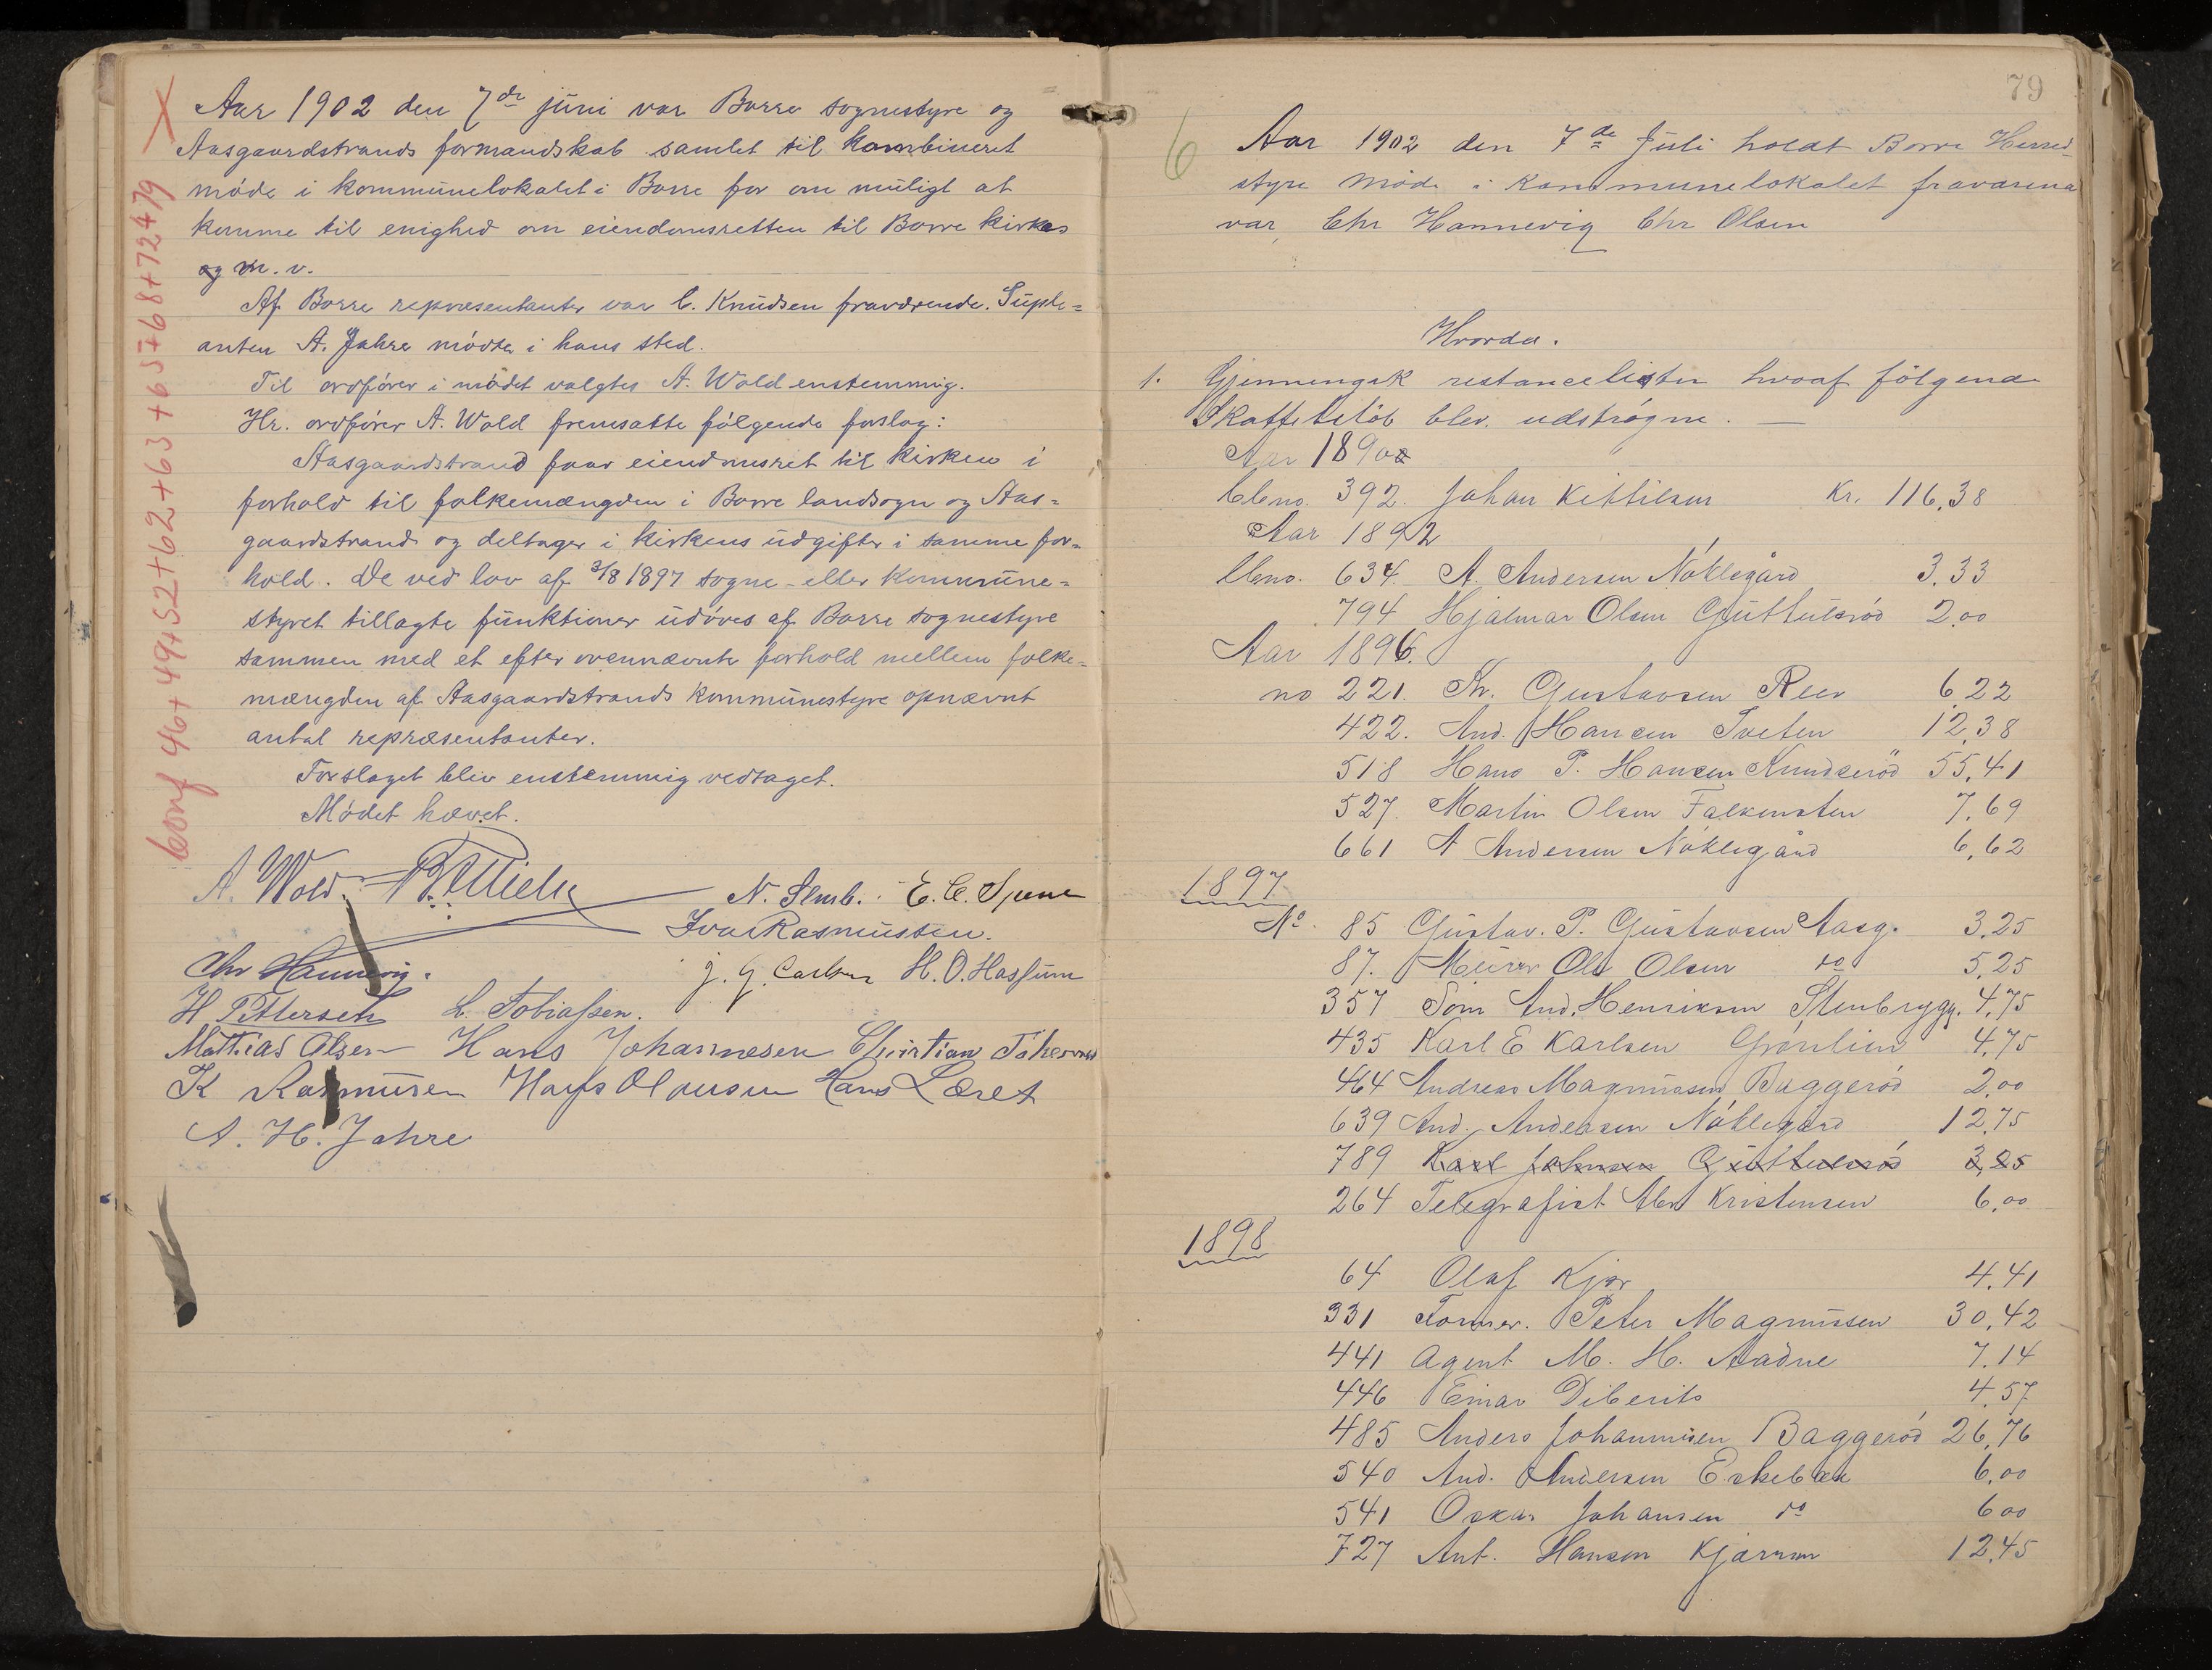 Aar 1902 den 7de juni var Borre sognestyre og
Aasgaardstrands formandskab samlet til kombineret
møde i kommunelokalet i Borre for om muligt at
komme til enighed om eiendomsretten til Borre kirkes
og m. v.
Af Borre repræsentanter var C. Knudsen fraværende. Suple=
anten A. Jahre mødte i hans sted.
Til ordfører i mødet valgtes A. Wold enstemmig.
Hr. ordfører A. Wold fremsatte følgende forslag:
Aasgaardstrand faar eiendomsret til kirken i
forhold til folkemængden i Borre landsogn og Aas=
gaardstrand og deltager i kirkens udgifter i samme for=
hold. De ved lov af 3/8 1897 sogne- eller kommune=
styret tillagte funktioner udøves af Borre sognestyre
sammen med et efter ovennævnte forhold mellem folke=
mængden af Aasgaardstrands kommunestyre opnævnt
antal repræsentanter.
Forslaget blev enstemmig vedtaget.
Mødet hævet.
A. Wold. N. E. C.
Ivar Rasmussen.
Chr Hannevig. J. G. Carlsen H. O. Hassum
H Pettersen L. Tobiassen.
Mathias Olsen Hans Johannesen Christian
K Rasmusen Hans Olausen Hans Læret
A. H. Jahre
conf 46+49+52+62+63+65+68+72+79
79
6
Aar 1902 den 7de Juli holdt Borre Herred-
styre møde i Kommunelokalet fraværena
var Chr Hannevig Chr Olsen
Hvorda.
1. Gjennemgik restancelisten hvoaf følgende
Skattebeløb blev udstrøgne. —
Aar 1890
Lbno. 392. Johan Kittilsen Kr. 116,38
Aar 1892
Lbno. 634. A. Andersen Nøklegård 3,33
794 Hjalmar Olsen Guttulsrød 2,00
Aar 1896.
no 221. Kr. Gustavsen Reer 6,22
422. And. Hansen Tveten 12,38
518 Hans P. Hansen Knudserød 55,41
527. Martin Olsen Falkensten 7,69
661 A Andersen Nøklegård 6,62
1897
No. 85 Gustav. P. Gustavsen Aasg. 3,25
87. Murer Ole Olsen do 5,25
357 Søm And. Henriksen Stenbrygg. 4,75
435 Karl E Karlsen Grønlien 4,75
464 Andreas Magnussen Baggerød 2,00
639 And. Andersen Nøklegård 12,75
789 Karl Johnsen Guttulsrød 3,25
264 Telegrafist Alm Kristensen 6,00
1898
64 Olaf Kjær 4,41
331 Former. Peter Magnussen 30,42
441 Agent M. H. Aadne 7,14
446 Einar Diberits 4,57
485 Anders Johannesen Baggerød 26,76
540 And. Andersen Eskebæk 6,00
541 Oskar Johansen do 6 00
727 Ant. Hansen Kjærran 12,45